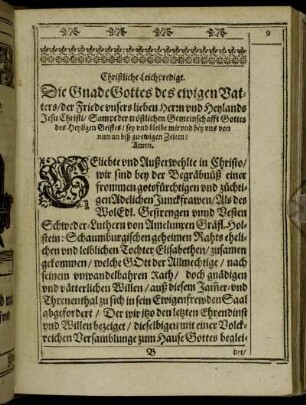 9
Christliche Leichpredigt.
Die Gnade Gottes des ewigen Vat-
ters/ der Friede vnsers lieben Herrn vnd Heylands
Jesu Christi/ Sampt der tröstlichen Gemeinschafft Gottes
des Heyligen Geistes/ sey vnd bleibe mit vnd bey vns von
nun an biß zu ewigen Zeiten/
Amen.
GEliebte vnd Außerwehlte in Christo/
wir sind bey der Begräbnüß einer
frommen gotsfürchtigen vnd züchti-
gen Adelichen Junckfrawen/ Als des
Wol Edl. Gestrengen vnnd Vesten
Schweder-Luthern von Amelunxen Gräfl. Hol-
stein: Schaumburgischen geheimen Rahts eheli-
chen vnd leiblichen Tochter Elisabethen/ zusamen
gekommen/ welche GOtt der Allmechtige/ nach
seinem vnwandelbahren Rath/ doch gnädigen
vnd vätterlichen Willen/ auß diesem Jam̃er- vnd
Threnenthal zu sich in sein Ewigen frewden Saal
abgefordert/ Der wir itzo den letzten Ehrendinst
vnd Willen bezeiget/ dieselbigen mit einer Volck-
reichen Versamblunge zum Hause Gottes beglei-
B
det/